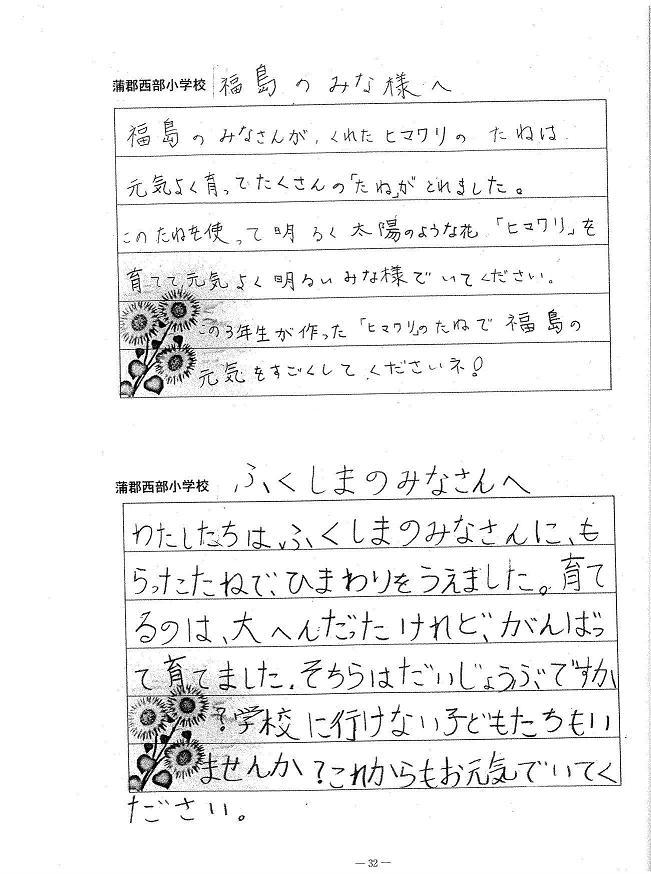 蒲郡西部小学校 福島のみな様へ
福島のみなさんが、くれたヒマワリの たねは
元気よく育ってたくさんの「たね」が とれました。
このたねを使って明るく太陽のような花「ヒマワリ」を
育てて元気よく明るいみな様でいてください。
この3年生が作った「ヒマワリ」のたねで 福島の
元気をすごくしてくださいネ!
蒲郡西部小学校 ふくしまのみなさんへ
わたしたちは、ふくしまのみなさんに、も
らったたねで、ひまわりをうえました。育て
るのは、大へんだったけれど、がんばっ
て育てました。そちらはだいじょうぶですか
?学校に行けない子どもたちもい
ませんか?これからもお元気でいてく
ださい。
— 32 —